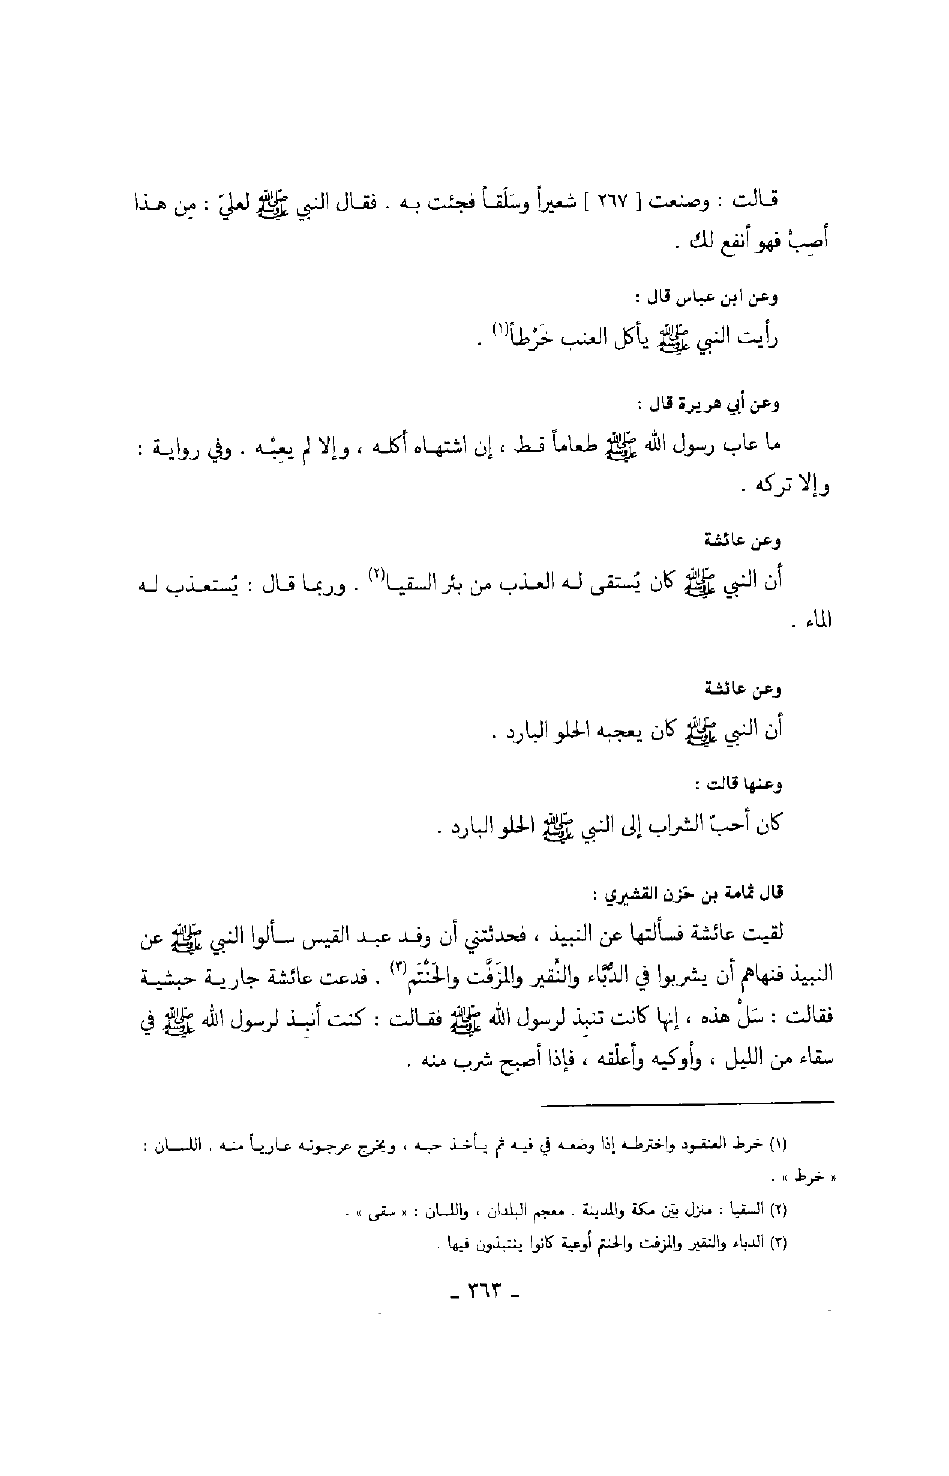 قالت : وصنعت [ ٢٦٧ ] شعيراً وسَلَقاً فجئت به . فقال النبي ﷺ لعليّ : مِن هذا
أصِبْ فهو أنفع لك .
وعن ابن عباس قال :
رأيت النبي ﷺ يأكل العنب خَرْطاً(١) .
وعن أبي هريرة قال :
ما عاب رسول الله ﷺ طعاماً قط ، إن اشتهاه أكله ، وإلا لم يعِبْه . وفي رواية :
وإلا تركه .
وعن عائشة
أن النبي ﷺ كان يُستقى له العذب من بئر السقيا(٢) . وربما قال : يُستعذب له
الماء .
وعن عائشة
أن النبي ﷺ كان يعجبه الحلو البارد .
وعنها قالت :
كان أحبّ الشراب إلى النبي ﷺ الحلو البارد .
قال ثمامة بن حَزن القشيري :
لقيت عائشة فسألتها عن النبيذ ، فحدثتني أن وفد عبد القيس سألوا النبي ﷺ عن
النبيذ فنهاهم أن يشربوا في الدُّبّاء والنَّقير والمزَفَّت والحَنْتَم(٣) . فدعت عائشة جارية حبشية
فقالت : سَلْ هذه ، إنها كانت تنبِذ لرسول الله ﷺ فقالت : كنت أنبِذ لرسول الله ﷺ في
سقاء من الليل ، وأوكيه وأعلّقه ، فإذا أصبح شرب منه .
(١) خرط العنقود واخترطه إذا وضعه في فيه ثم يأخذ حبه ، ويخرج عرجونه عارياً منه . اللسان :
« خرط » .
(٢) السقيا : منزل بين مكة والمدينة . معجم البلدان ، واللسان : « سقى » .
(٣) الدباء والنقير والمزفت والحنتم أوعية كانوا ينتبذون فيها .
ـ ٣٦٣ ـ